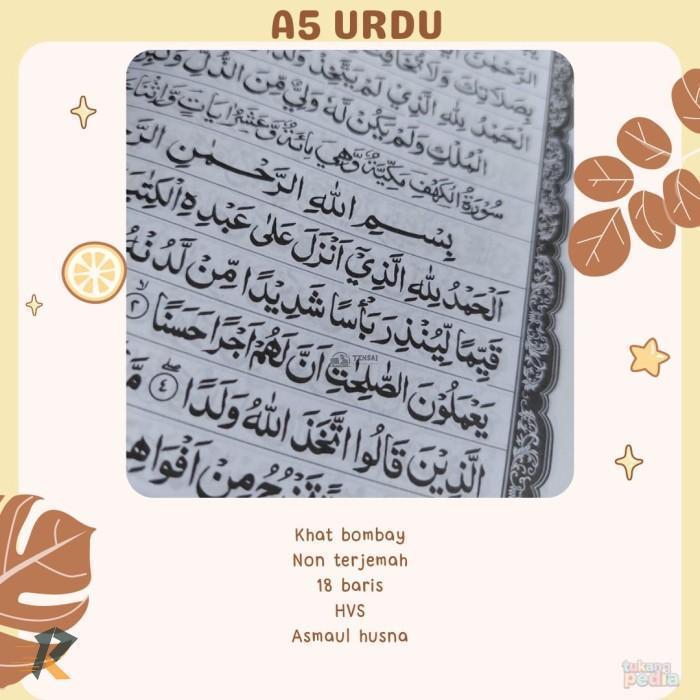 A5 URDU
بِصَلَاتِكَ وَلَا تُخَافِتْ
الْحَمْدُ لِلّٰهِ الَّذِيْ لَمْ يَتَّخِذْ وَلَدًا
الْمُلْكِ وَلَمْ يَكُنْ لَّهٗ وَلِيٌّ مِّنَ الذُّلِّ وَكَبِّرْهُ
سُوْرَةُ الْكَهْفِ مَكِّيَّةٌ وَّهِيَ مِائَةٌ وَّعَشْرُ اٰيَاتٍ وَّاثْنَا
بِسْمِ اللّٰهِ الرَّحْمٰنِ
اَلْحَمْدُ لِلّٰهِ الَّذِيْٓ اَنْزَلَ عَلٰى عَبْدِهِ الْكِتٰبَ
قَيِّمًا لِّيُنْذِرَ بَأْسًا شَدِيْدًا مِّنْ لَّدُنْهُ
يَعْمَلُوْنَ الصّٰلِحٰتِ اَنَّ لَهُمْ اَجْرًا حَسَنًا ٢
الَّذِيْنَ قَالُوا اتَّخَذَ اللّٰهُ وَلَدًا ٤
تَخْرُجُ مِنْ اَفْوَاهِ
TENSAI
Khat bombay
Non terjemah
18 baris
HVS
Asmaul husna
tukang
pedia